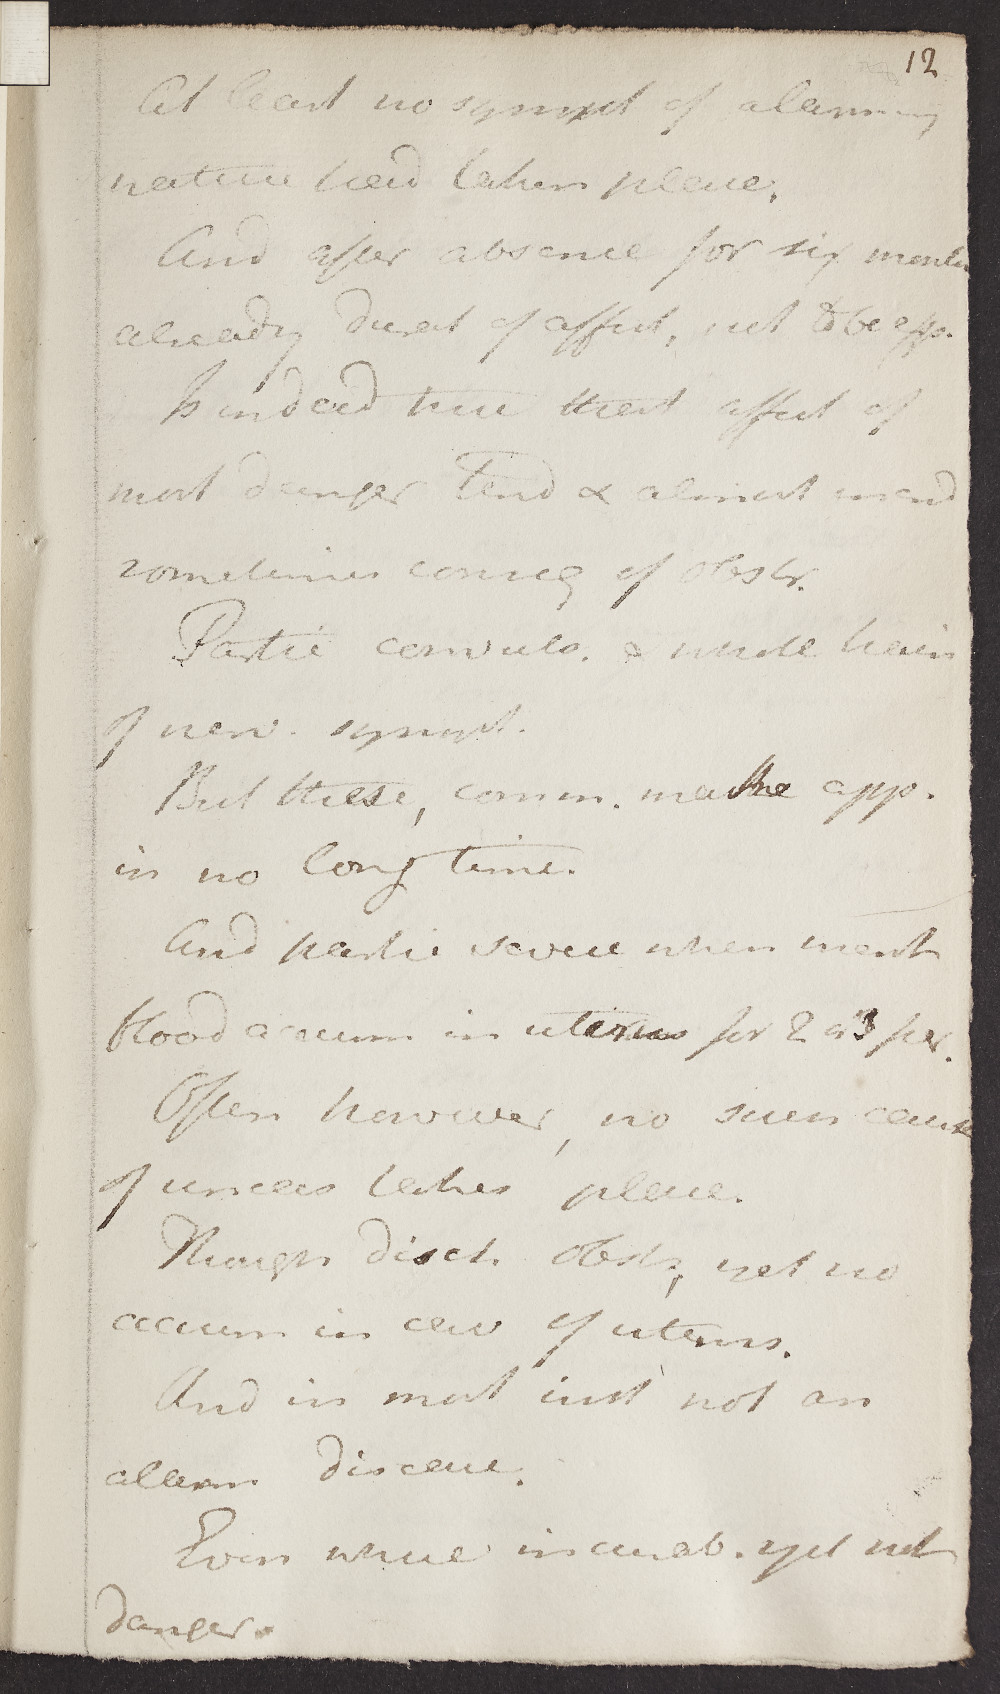 12
At least no sympt of alarming
nature had taken place.
And after absence for six months
already durat of affect, not to be app.
Is indeed true that affect of
most danger tend & almost
sometimes conseq of obstr.
Partic convuls. & whole train
of nerv. sympt.
But these, comm. make app.
in no long time.
And partic severe when menst
blood accum in uterus for 2 or 3 per.
Often however, no such cause
of uneas takes place.
Though disch. obstr, yet no
accum in cav of uterus.
And in most inst not an
alarm disease.
Even where incurab. yet not
danger.